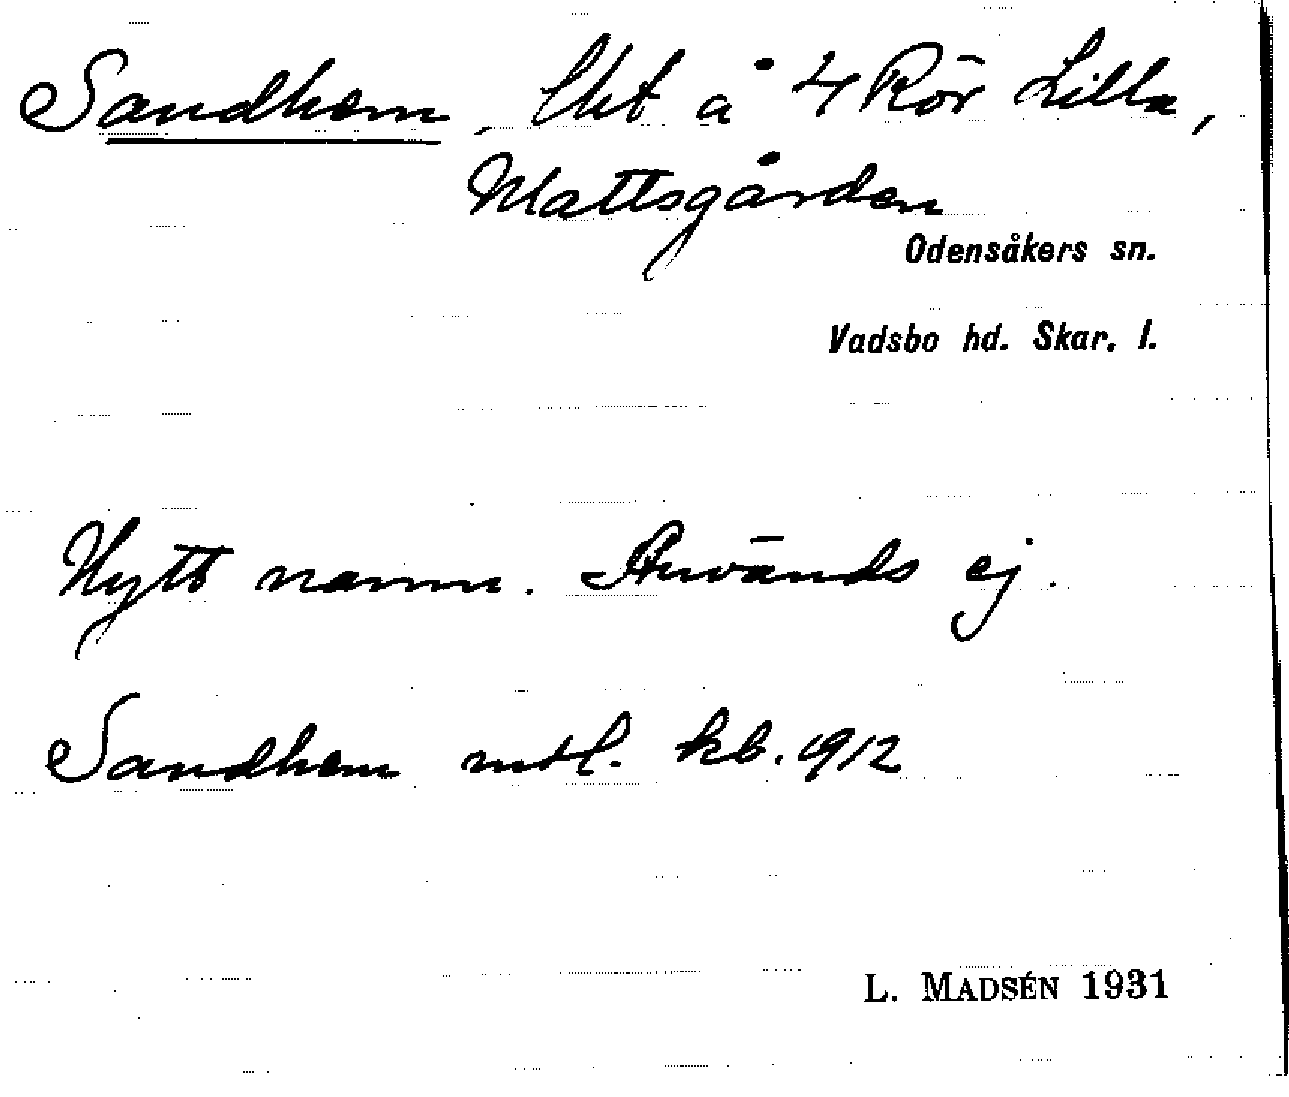 Sandhem, lht å 4 Rör Lilla,
Mattsgården
Odensåkers sn.
Vadsbo hd. Skar. l.
Nytt namn. Används ej.
Sandhem mtl. kb. 1912
L. MADSÉN 1931